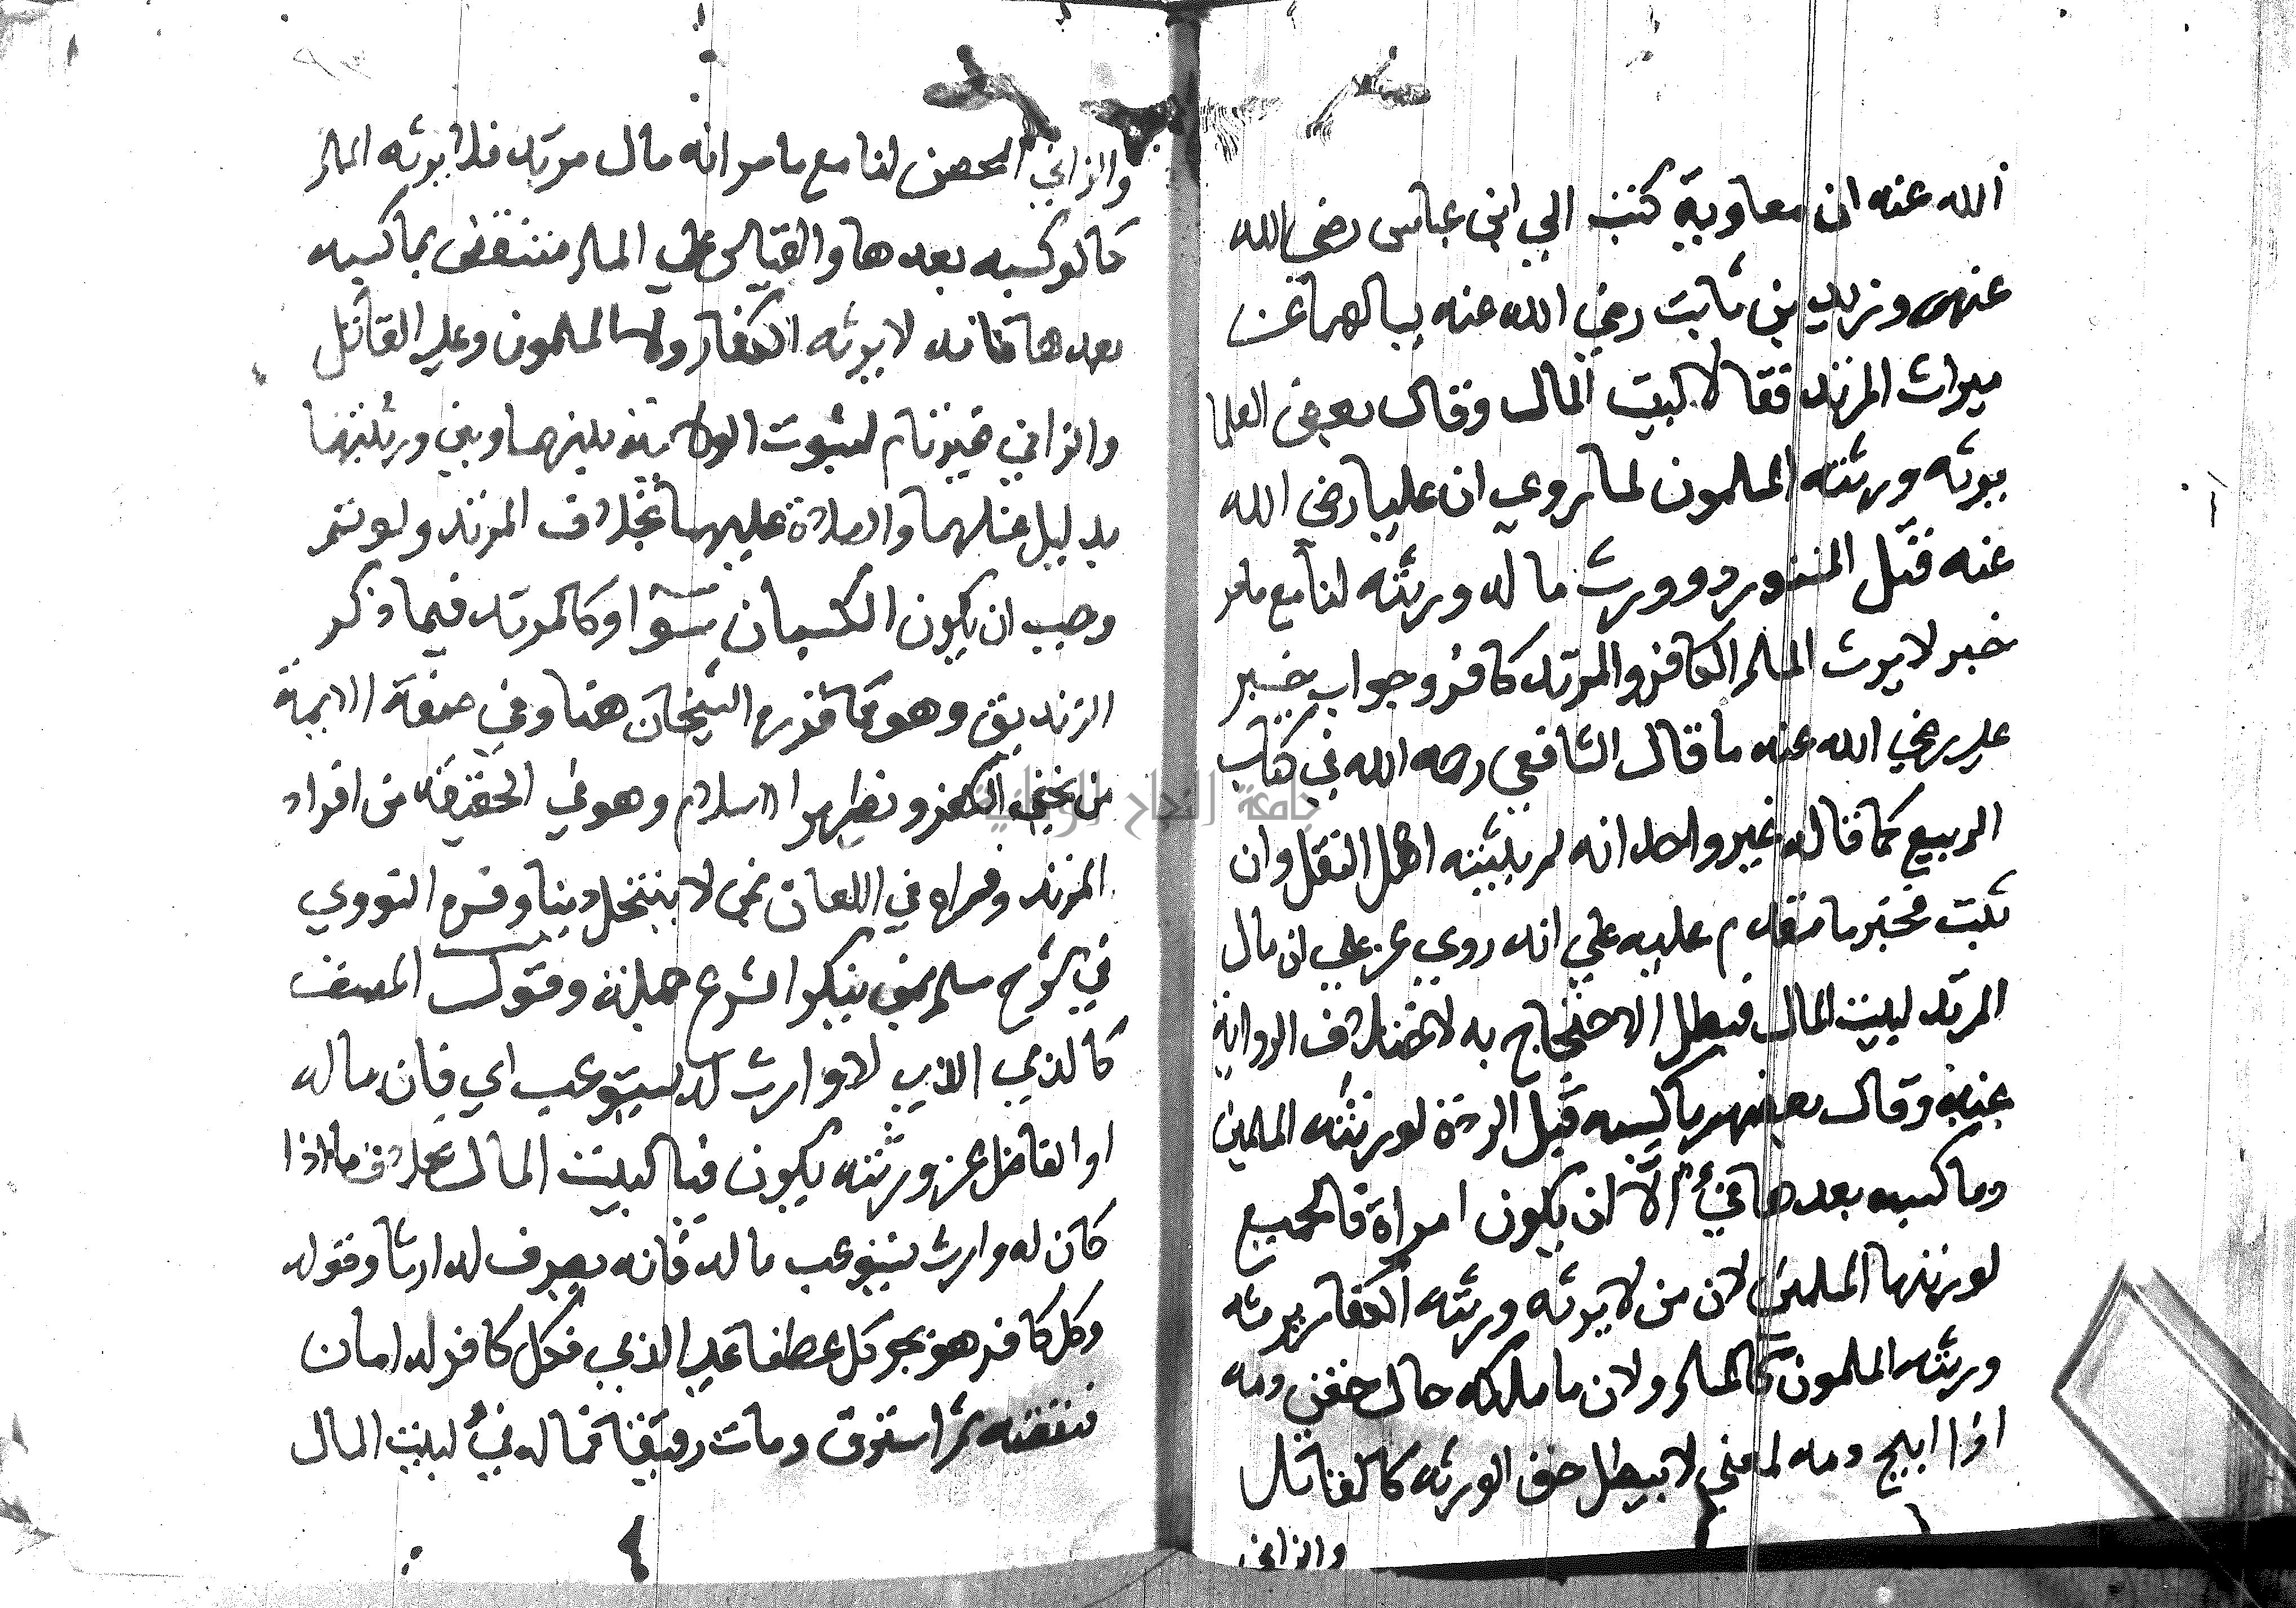 الله عنه ان معاوية كتب الي ابن عباس رضي الله
عنهم وزيد بن ثابت رضي الله عنه يسالهما عن
ميراث المرتد فقالا لبيت المال وقال بعض العلما
يرثه ورثته المسلمون لما روي ان عليا رضي الله
عنه قتل المستورد وورث ماله ورثته لنا مع مامر
خبر لا يرث المسلم الكافر والمرتد كافر وجواب خبر
علي رضي الله عنه ما قال الشافعي رحمه الله في كتاب
الربيع كما قاله غير واحد انه لم يثبته اهل النقل وان
ثبت فخبر ما متقدم عليه علي انه روي عن علي ان مال
المرتد لبيت المال فبطل الاحتجاج به لاختلاف الرواية
عنه وقال بعضهم ما كسبه قبل الردة لورثته المسلمين
وما كسبه بعدها فئ الا ان يكون امراة فالجميع
لورثتها المسلمين لان من لا يرثه ورثته الكفار يرثه
ورثته المسلمون كالمسلم ولان ما ملكه حال حقن دمه
اذا ابيح دمه لمعني لا يبطل حق الورثه كالقاتل
والزاني
والزاني المحصن لنا مع ما مر انه مال مرتد فلا يرثه المسلم
كما لو كسبه بعدها والقياس علي المسلم منتقض بما كسبه
بعدها فانه لا يرثه الكفار ولا المسلمون وعلي القاتل
والزاني غير تام لثبوت الولاية بينهما وبين ورثتهما
بدليل غسلهما والصلاة عليهما بخلاف المرتد ولو تم
وجب ان يكون الكسبان سوا وكالمرتد فيما ذكر
الزنديق وهو كما قرره الشيخان هنا وفي صفة الايمة
من يخفي الكفر ويظهر الاسلام وهو في الحقيقة من افراد
المرتد وفسراه في اللعان بمن لا ينتحل دينا وفسره النووي
في شرح مسلم بمن ينكر الشرع جملة وقول المصنف
كالذي الذي لا وارث له يستوعب اي فان ماله
او الفاضل عن ورثته يكون فيا لبيت المال بخلاف ما اذا
كان له وارث يستوعب ماله فانه يصرف له ارثا وقوله
وكل كافر هو بجر كل عطفا علي الذي فكل كافر له امان
فنقضه ثم استرق ومات رقيقا فماله فئ لبيت المال
جامعة النجاح الوطنية